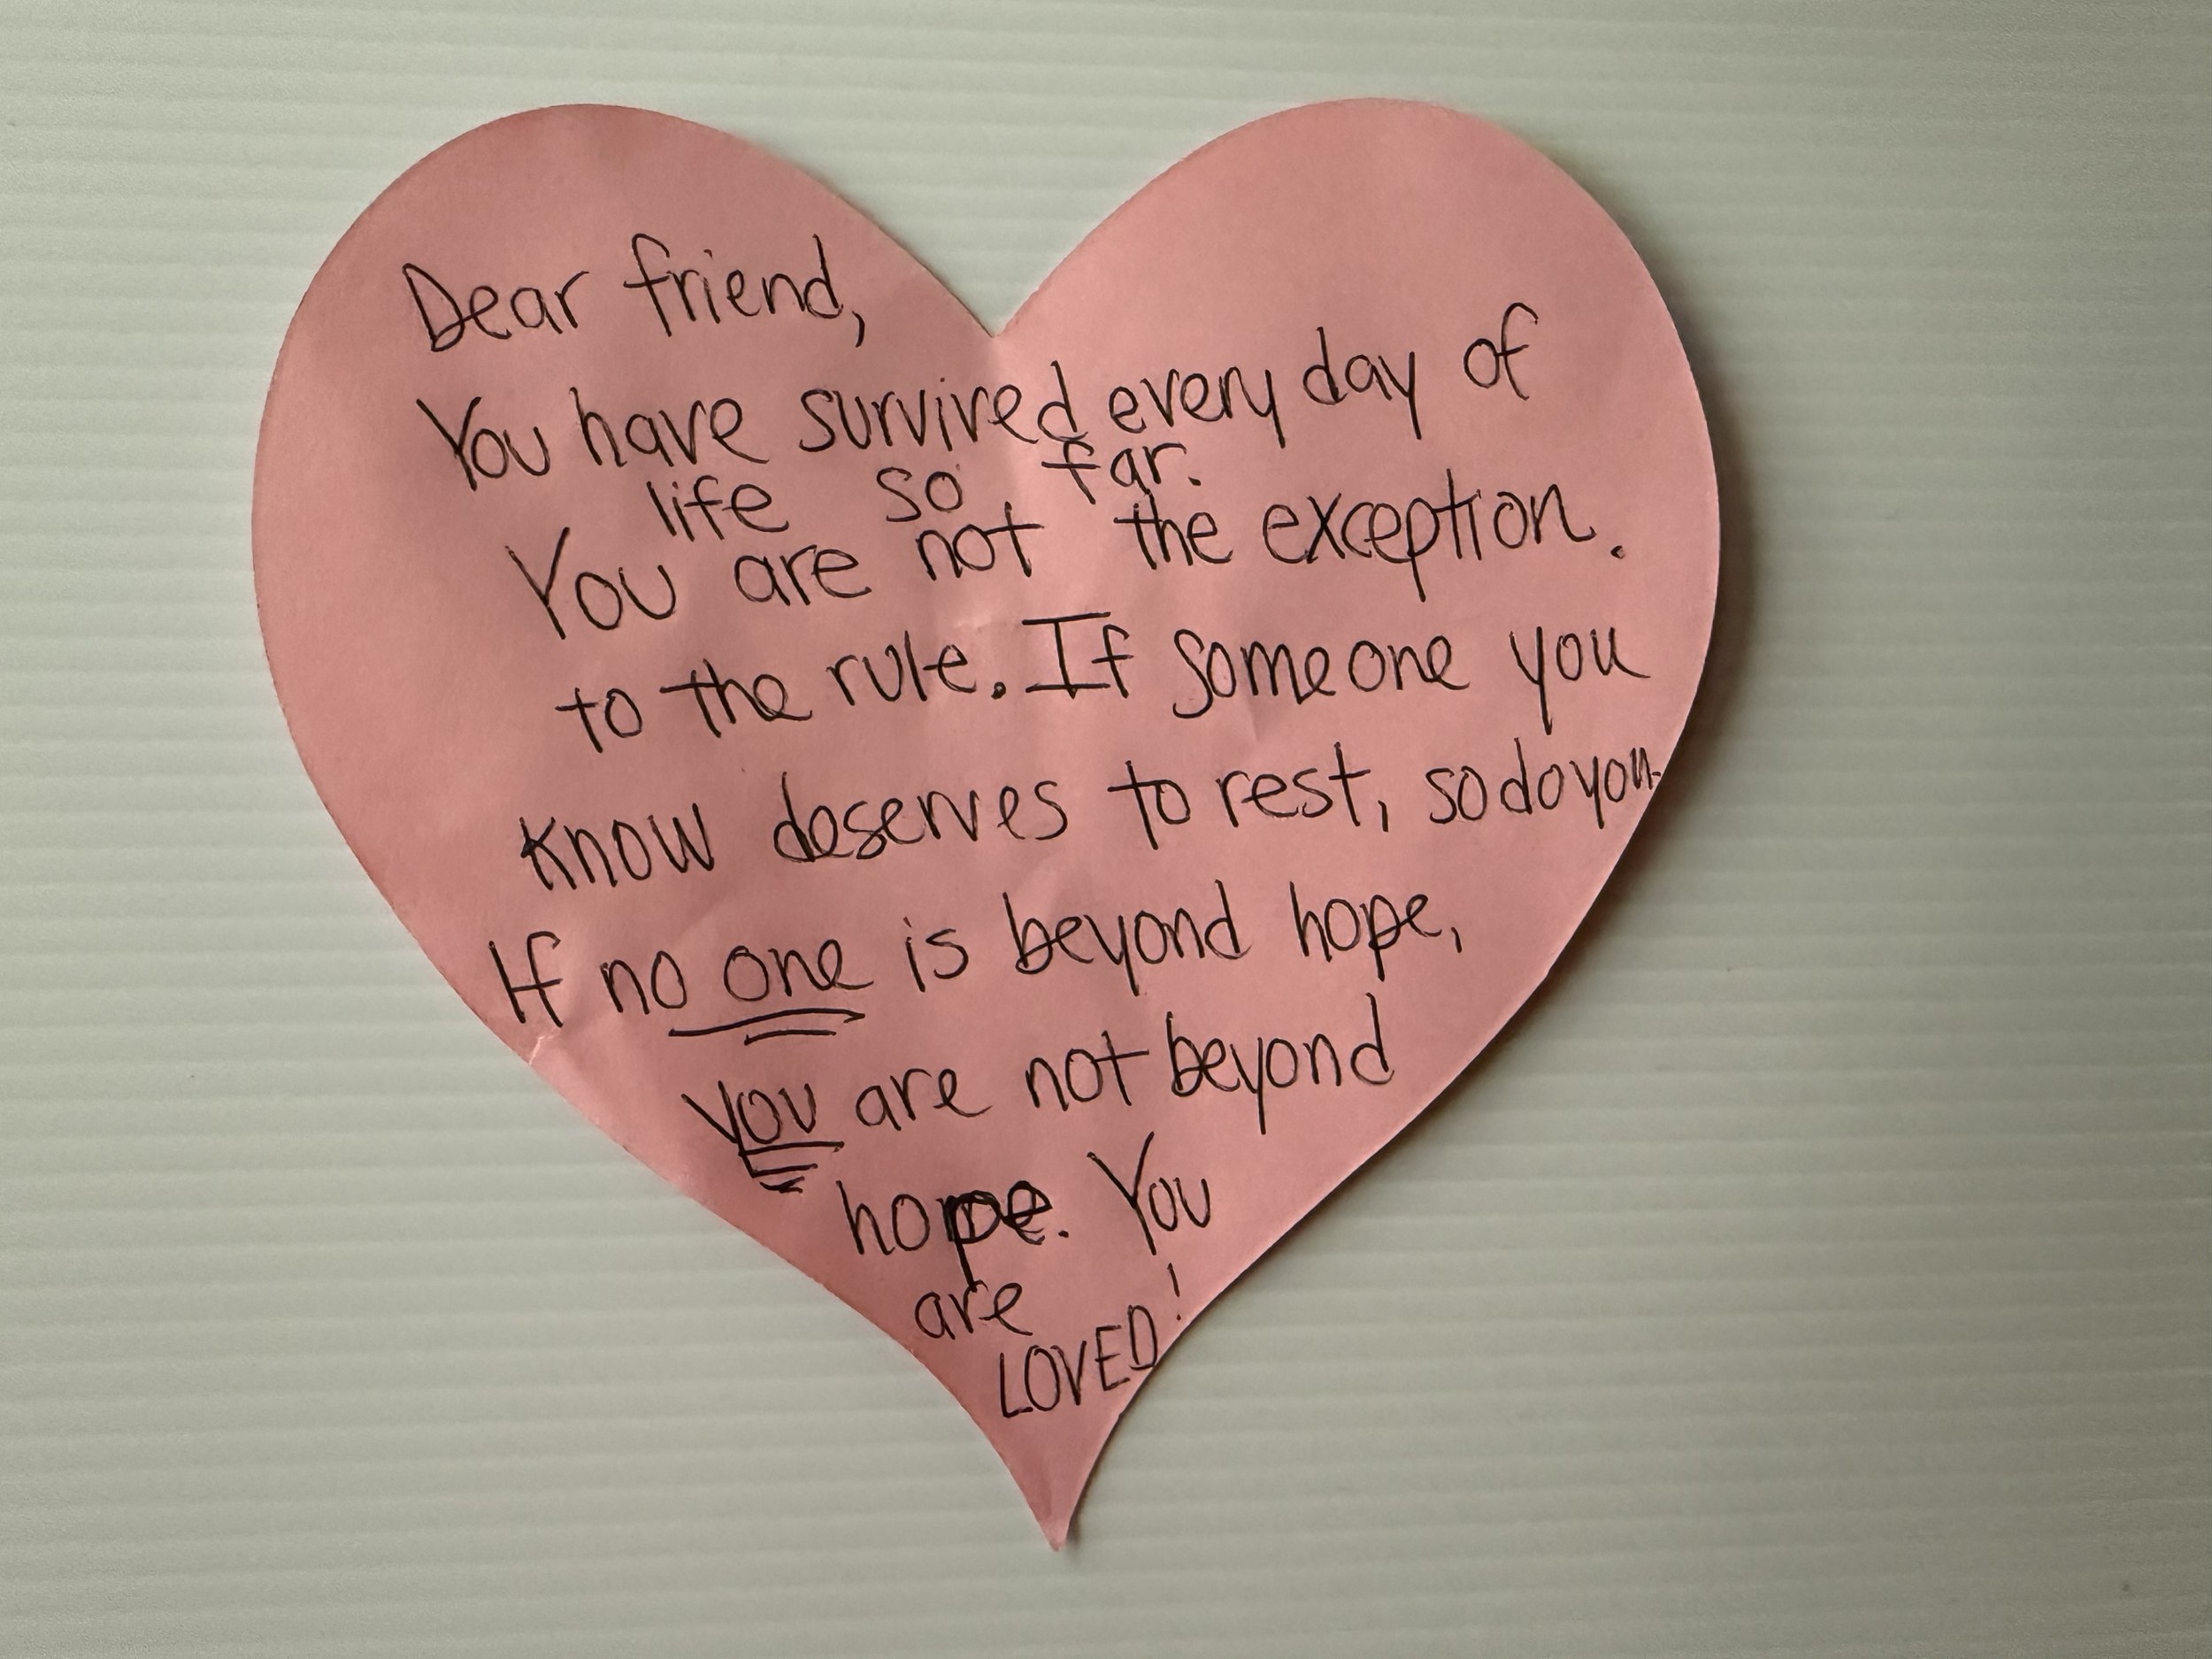 Dear friend,
You have survived every day of
life so far.
You are not the exception.
to the rule. If someone you
know deserves to rest, so do you.
If no one is beyond hope,
you are not beyond
hope. You
are
LOVED!